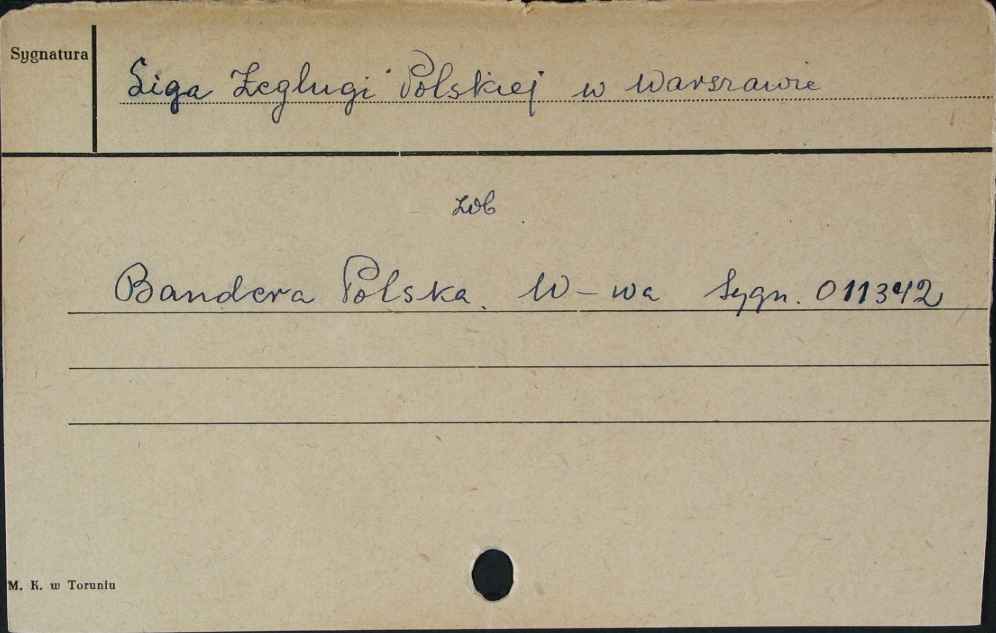 Sygnatura
Liga Żeglugi Polskiej w Warszawie
zob
Bandera Polska. W-wa Sygn. 011342
M. K. w Toruniu